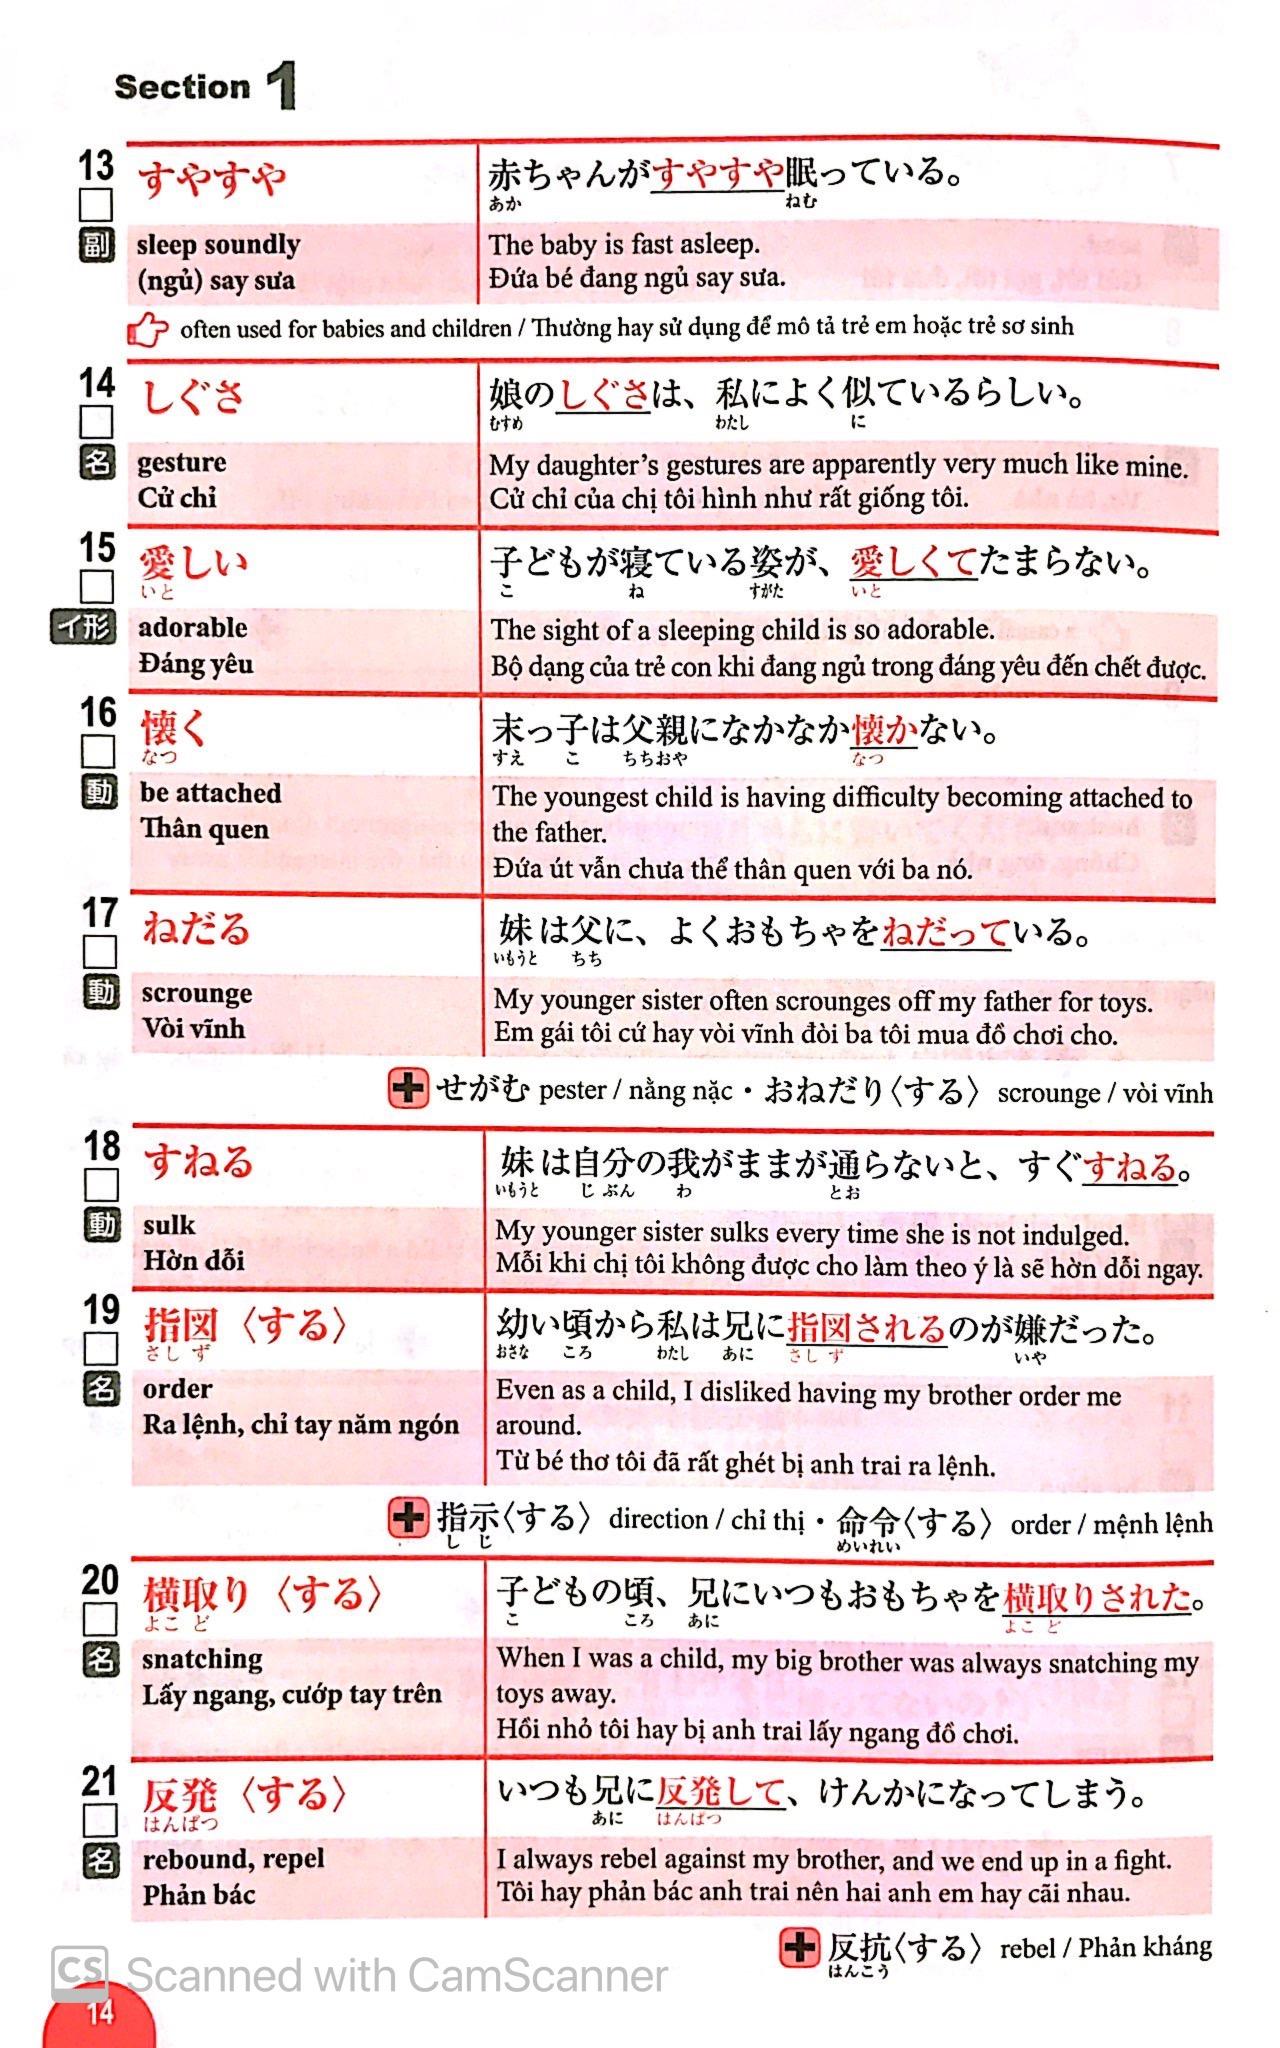 Section 1
13
すやすや
赤ちゃんがすやすや眠っている。
あか ねむ
副
sleep soundly
(ngủ) say sưa
The baby is fast asleep.
Đứa bé đang ngủ say sưa.
often used for babies and children / Thường hay sử dụng để mô tả trẻ em hoặc trẻ sơ sinh
14
しぐさ
娘のしぐさは、私によく似ているらしい。
むすめ わたし に
名
gesture
Cử chỉ
My daughter's gestures are apparently very much like mine.
Cử chỉ của chị tôi hình như rất giống tôi.
15
愛しい
いと
子どもが寝ている姿が、愛しくてたまらない。
こ ね すがた いと
イ形
adorable
Đáng yêu
The sight of a sleeping child is so adorable.
Bộ dạng của trẻ con khi đang ngủ trong đáng yêu đến chết được.
16
懐く
なつ
末っ子は父親になかなか懐かない。
すえ こ ちちおや なつ
動
be attached
Thân quen
The youngest child is having difficulty becoming attached to
the father.
Đứa út vẫn chưa thể thân quen với ba nó.
17
ねだる
妹は父に、よくおもちゃをねだっている。
いもうと ちち
動
scrounge
Vòi vĩnh
My younger sister often scrounges off my father for toys.
Em gái tôi cứ hay vòi vĩnh đòi ba tôi mua đồ chơi cho.
+ せがむ pester / nằng nặc・おねだり〈する〉 scrounge / vòi vĩnh
18
すねる
妹は自分の我がままが通らないと、すぐすねる。
いもうと じ ぶん わ とお
動
sulk
Hờn dỗi
My younger sister sulks every time she is not indulged.
Mỗi khi chị tôi không được cho làm theo ý là sẽ hờn dỗi ngay.
19
指図〈する〉
さし ず
幼い頃から私は兄に指図されるのが嫌だった。
おさな ころ わたし あに さし ず いや
名
order
Ra lệnh, chỉ tay năm ngón
Even as a child, I disliked having my brother order me
around.
Từ bé thơ tôi đã rất ghét bị anh trai ra lệnh.
+ 指示〈する〉 direction / chỉ thị・命令〈する〉 order / mệnh lệnh
し じ めいれい
20
横取り〈する〉
よこ ど
子どもの頃、兄にいつもおもちゃを横取りされた。
こ ころ あに よこ ど
名
snatching
Lấy ngang, cướp tay trên
When I was a child, my big brother was always snatching my
toys away.
Hồi nhỏ tôi hay bị anh trai lấy ngang đồ chơi.
21
反発〈する〉
はんぱつ
いつも兄に反発して、けんかになってしまう。
あに はんぱつ
名
rebound, repel
Phản bác
I always rebel against my brother, and we end up in a fight.
Tôi hay phản bác anh trai nên hai anh em hay cãi nhau.
+ 反抗〈する〉 rebel / Phản kháng
はんこう
CS Scanned with CamScanner
14